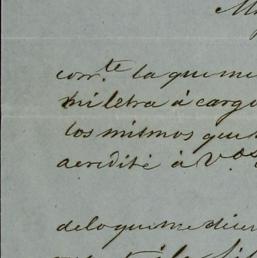 corr.te la que me
mi letra á cargo
los mismos que
acredité á V.os
de lo que me dicen